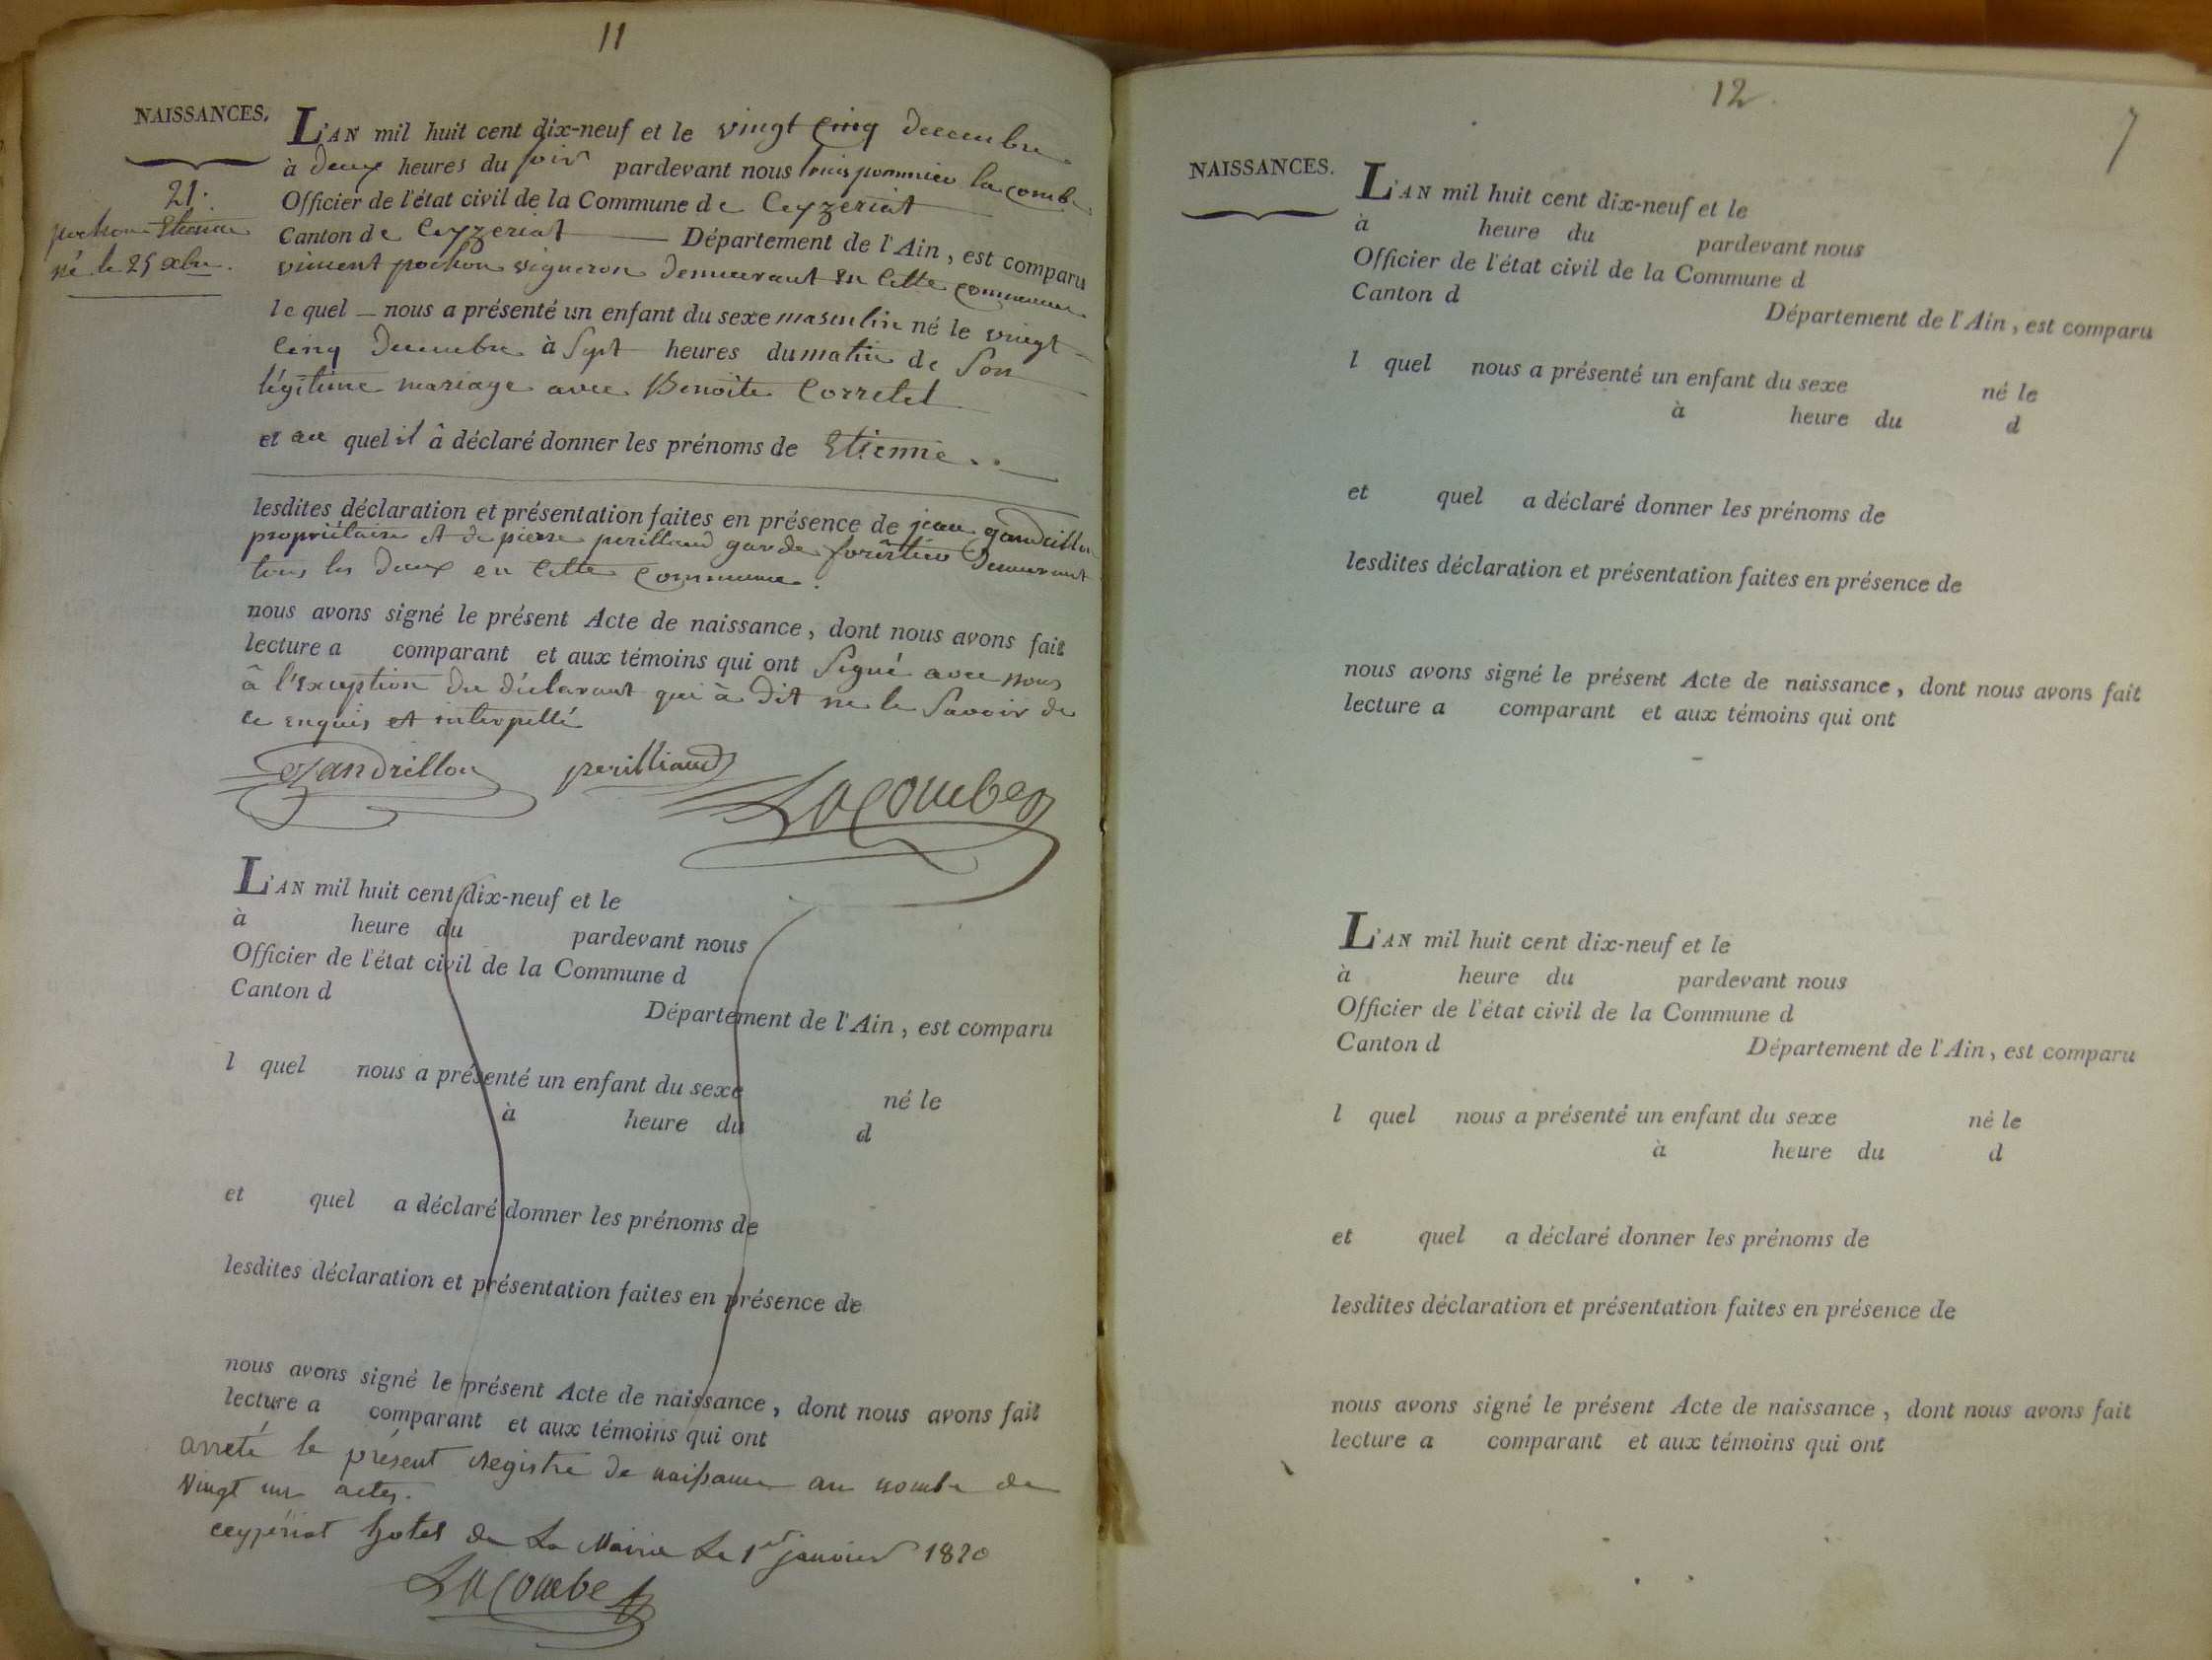 11
NAISSANCES.
21.
pochon Etienne
né le 25 xbre.
L'AN mil huit cent dix-neuf et le vingt cinq decembre
à deux heures du soir pardevant nous louis pommier la combe
Officier de l'état civil de la Commune de Ceyzeriat
Canton de Ceyzeriat Département de l'Ain, est comparu
vincent pochon vigneron demeurant en cette commune
le quel nous a présenté un enfant du sexe masculin né le vingt
cinq decembre à sept heures du matin de son
légitime mariage avec Benoîte Corretel
et au quel il â déclaré donner les prénoms de Etienne..
lesdites déclaration et présentation faites en présence de jean gandrillon
propriétaire et de pierre perilliaud garde forêstier demeurant
tous les deux en cette commune.
nous avons signé le présent Acte de naissance, dont nous avons fait
lecture a comparant et aux témoins qui ont signé avec nous
â l'exception du déclarant qui â dit ne le savoir de
ce enquis et interpellé
Gandrillon perilliaud Lacombe
L'AN mil huit cent dix-neuf et le
à heure du pardevant nous
Officier de l'état civil de la Commune d
Canton d
Département de l'Ain, est comparu
l quel nous a présenté un enfant du sexe né le
à heure du d
et quel a déclaré donner les prénoms de
lesdites déclaration et présentation faites en présence de
nous avons signé le présent Acte de naissance, dont nous avons fait
lecture a comparant et aux témoins qui ont
arreté le présent registre de naissance au nombre de
vingt un actes.
ceyzériat hotel de La Mairie Le 1er janvier 1820
Lacombe
12
7
NAISSANCES.
L'AN mil huit cent dix-neuf et le
à heure du pardevant nous
Officier de l'état civil de la Commune d
Canton d
Département de l'Ain, est comparu
l quel nous a présenté un enfant du sexe né le
à heure du d
et quel a déclaré donner les prénoms de
lesdites déclaration et présentation faites en présence de
nous avons signé le présent Acte de naissance, dont nous avons fait
lecture a comparant et aux témoins qui ont
L'AN mil huit cent dix-neuf et le
à heure du pardevant nous
Officier de l'état civil de la Commune d
Canton d Département de l'Ain, est comparu
l quel nous a présenté un enfant du sexe né le
à heure du d
et quel a déclaré donner les prénoms de
lesdites déclaration et présentation faites en présence de
nous avons signé le présent Acte de naissance, dont nous avons fait
lecture a comparant et aux témoins qui ont